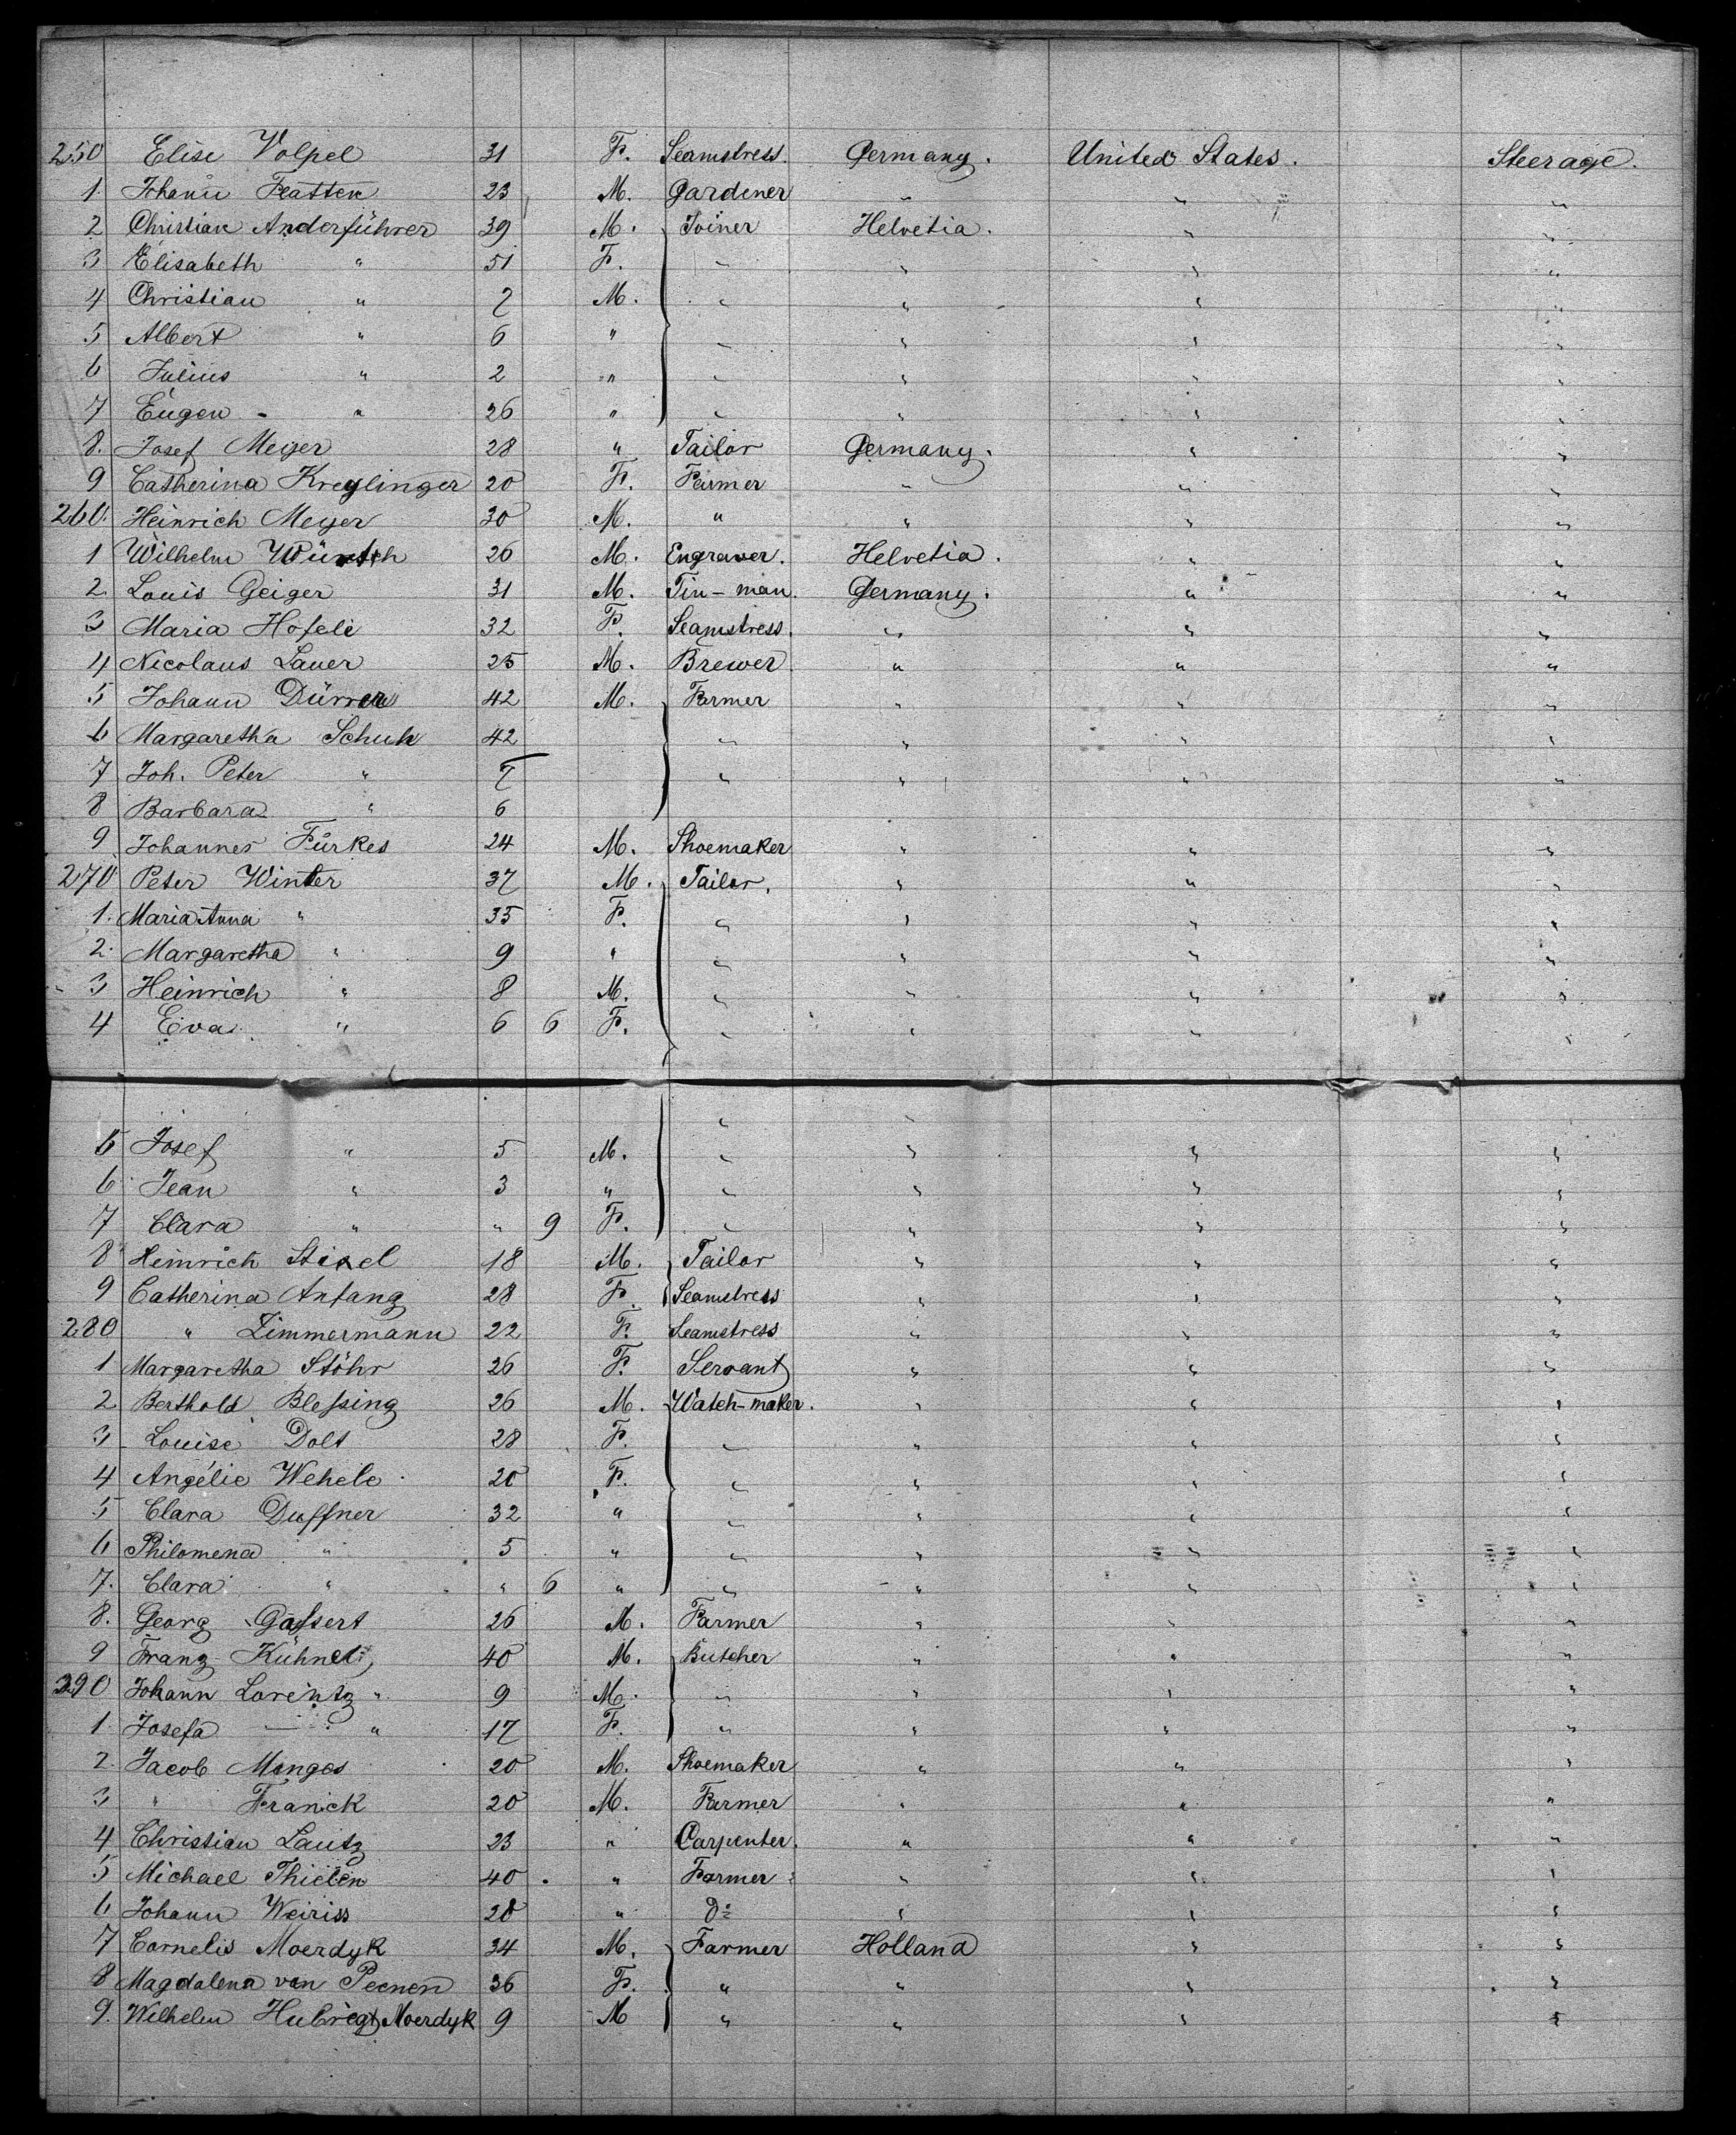 250 Elise Volpel 31 F. Seamstress. Germany. United States. Steerage.
1. Johann Flatten 23 M. Gardener " " "
2 Christian Anderführer 39 M. Joiner Helvetia. " "
3 Elisabeth " 51 F. " " " "
4 Christian " 7 M. " " " "
5 Albert " 6 " " " " "
6 Julius " 2 " " " " "
7 Eugen - " 26 " " " " "
8. Josef Meyer 28 " Tailor Germany. " "
9 Catherina Kreglinger 20 F. Farmer " " "
260. Heinrich Meyer 30 M. " " " "
1 Wilhelm 26 M. Engraver. Helvetia. " "
2. Louis Geiger 31 M. Tin-man. Germany. " "
3 Maria Hofele 32 F. Seamstress. " " "
4 Nicolaus Lauer 25 M. Brewer. " " "
5 Johann 42 M. Farmer " " "
6 Margaretha Schuh 42 " " " "
7 Joh. Peter " 7 " " " "
8 Barbara " 6
9 Johannes Fürkes 24 M. Shoemaker " " "
270 Peter Winter 37 M. Tailor. " " "
1. Maria Anna " 35 F. " " " "
2. Margaretha " 9 " " " " "
3 Heinrich " 8 M. " " " "
4 Eva " 6 6 F. " " " "
" "
5 Josef " 5 M. " " " "
6 Jean " 3 " " " " "
7 Clara " " 9 F. " " " "
8 Heinrich 18 M. Tailor " " "
9 Catherina Anfang 28 F. Seamstress " " "
280 " Zimmermann 22 F. Seamstress " " "
1 Margaretha Stöhr 26 F. Servant " " "
2 Berthold Blessing 26 M. Watch-maker. " " "
3 Louise Dolt 28 F. " " " "
4 Angélie Wehele 20 F. " " " "
5 Clara Duffner 32 " " " " "
6 Philomena " 5 " " " " "
7. Clara " " 6 " " " " "
8. Georg Gassert 26 M. Farmer " " "
9 Franz Kühnel 40 M. Butcher " " "
290 Johann Lorentz " 9 M. " " " "
1. Josefa " 17 F. " " " "
2. Jacob Menges 20 M. Shoemaker " " "
3 " Franick 20 M. Farmer " " "
4 Christian Lautz 23 " Carpenter. " " "
5 Michael Thielen 40 " Farmer " " "
6 Johann Weiriss 28 " do " " "
7 Cornelis Moerdyk 34 M. Farmer Holland " "
8 Magdalena van Peenen 36 F. " " " "
9. Wilhelm Hubregt Moerdyk 9 M " " " "